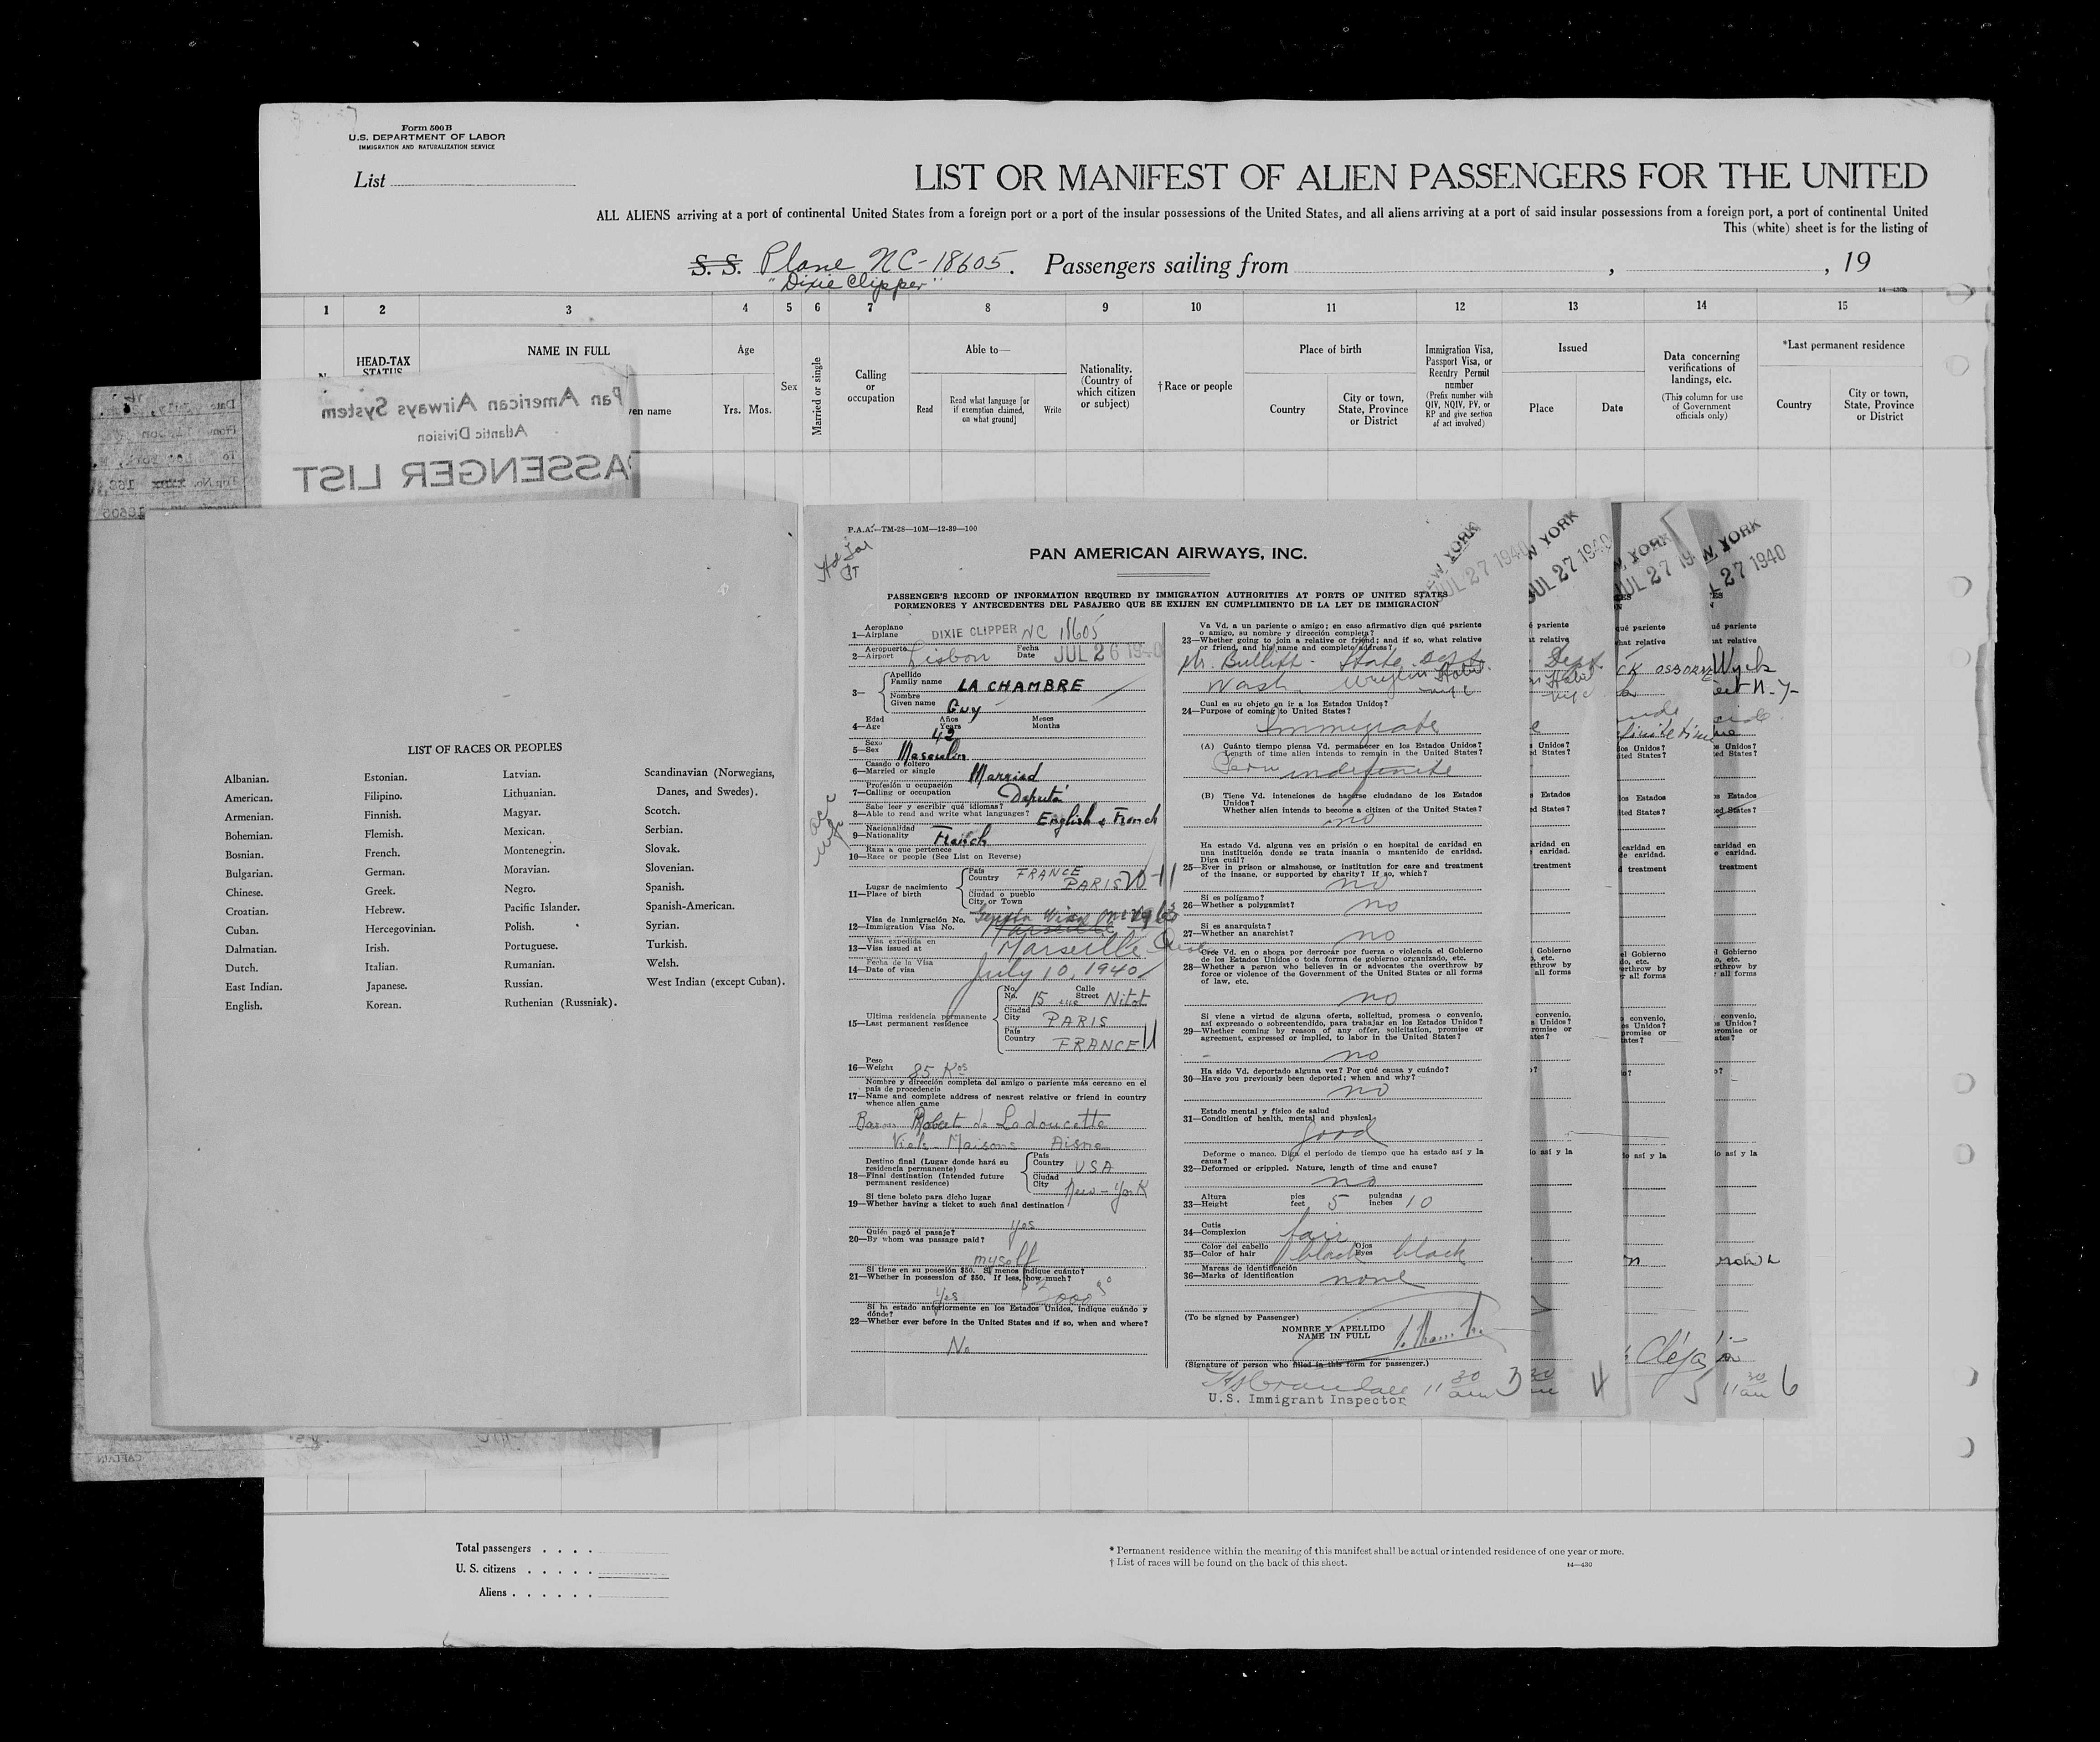 Form 500 B
U.S. DEPARTMENT OF LABOR
IMMIGRATION AND NATURALIZATION SERVICE
List
LIST OR MANIFEST OF ALIEN PASSENGERS FOR THE UNITED
ALL ALIENS arriving at a port of continental United States from a foreign port or a port of the insular possessions of the United States, and all aliens arriving at a port of said insular possessions from a foreign port, a port of continental United
This (white) sheet is for the listing of
S. S. Plane NC-18605. Passengers sailing from , , 19
"Dixie Clipper"
1 2 3 4 5 6 7 8 9 10 11 12 13 14 15
HEAD-TAX STATUS
NAME IN FULL
Age
Yrs. Mos.
Sex
Married or single
Calling or occupation
Able to—
Read
Read what language [or if exemption claimed, on what ground]
Write
Nationality. (Country of which citizen or subject)
† Race or people
Place of birth
Country
City or town, State, Province or District
Immigration Visa, Passport Visa, or Reentry Permit number
(Prefix number with QIV, NQIV, PV, or RP and give section of act involved)
Issued
Place
Date
Data concerning verifications of landings, etc.
(This column for use of Government officials only)
*Last permanent residence
Country
City or town, State, Province or District
Pan American Airways System
Atlantic Division
PASSENGER LIST
LIST OF RACES OR PEOPLES
Albanian.
American.
Armenian.
Bohemian.
Bosnian.
Bulgarian.
Chinese.
Croatian.
Cuban.
Dalmatian.
Dutch.
East Indian.
English.
Estonian.
Filipino.
Finnish.
Flemish.
French.
German.
Greek.
Hebrew.
Hercegovinian.
Irish.
Italian.
Japanese.
Korean.
Latvian.
Lithuanian.
Magyar.
Mexican.
Montenegrin.
Moravian.
Negro.
Pacific Islander.
Polish.
Portuguese.
Rumanian.
Russian.
Ruthenian (Russniak).
Scandinavian (Norwegians,
Danes, and Swedes).
Scotch.
Serbian.
Slovak.
Slovenian.
Spanish.
Spanish-American.
Syrian.
Turkish.
Welsh.
West Indian (except Cuban).
P.A.A.—TM-28—10M—12-39—100
PAN AMERICAN AIRWAYS, INC.
NEW YORK
JUL 27 1940
PASSENGER'S RECORD OF INFORMATION REQUIRED BY IMMIGRATION AUTHORITIES AT PORTS OF UNITED STATES
PORMENORES Y ANTECEDENTES DEL PASAJERO QUE SE EXIJEN EN CUMPLIMIENTO DE LA LEY DE IMMIGRACION
Aeroplano
1—Airplane DIXIE CLIPPER NC 18605
Aeropuerto Fecha
2—Airport Lisbon Date JUL 26 1940
Apellido
3— Family name LA CHAMBRE
Nombre
Given name Guy
Edad Años Meses
4—Age Years 42 Months
Sexo
5—Sex Masculin
Casado o soltero
6—Married or single Married
Profesión u ocupación
7—Calling or occupation Deputé
Sabe leer y escribir qué idiomas?
8—Able to read and write what languages? English & French
Nacionalidad
9—Nationality French
Raza a que pertenece
10—Race or people (See List on Reverse)
País
Country FRANCE
Lugar de nacimiento
11—Place of birth PARIS
Ciudad o pueblo
City or Town
Visa de Inmigración No.
12—Immigration Visa No.
Visa expedida en
13—Visa issued at Marseille
Fecha de la Visa
14—Date of visa July 10, 1940
No. Calle
No. 15 rue Street Nitot
Ultima residencia permanente Ciudad
15—Last permanent residence City PARIS
País
Country FRANCE
Peso
16—Weight 85 Kos
Nombre y dirección completa del amigo o pariente más cercano en el
país de procedencia
17—Name and complete address of nearest relative or friend in country
whence alien came
Baron Robert de Ladoucette
Viels Maisons Aisne
Destino final (Lugar donde hará su
residencia permanente)
18—Final destination (Intended future
permanent residence)
País
Country USA
Ciudad
City New-York
Si tiene boleto para dicho lugar
19—Whether having a ticket to such final destination
yes
Quién pagó el pasaje?
20—By whom was passage paid?
myself
Si tiene en su posesión $50. Si menos indique cuánto?
21—Whether in possession of $50. If less, how much?
Yes
Si ha estado anteriormente en los Estados Unidos, indique cuándo y
dónde?
22—Whether ever before in the United States and if so, when and where?
No
Va Vd. a un pariente o amigo; en caso afirmativo diga qué pariente
o amigo, su nombre y dirección completa?
23—Whether going to join a relative or friend; and if so, what relative
or friend, and his name and complete address?
Mr. Bullitt - State Dept.
Wash.
Cual es su objeto en ir a los Estados Unidos?
24—Purpose of coming to United States?
Immigrate
(A) Cuánto tiempo piensa Vd. permanecer en los Estados Unidos?
Length of time alien intends to remain in the United States?
indefinite
(B) Tiene Vd. intenciones de hacerse ciudadano de los Estados
Unidos?
Whether alien intends to become a citizen of the United States?
no
Ha estado Vd. alguna vez en prisión o en hospital de caridad en
una institución donde se trata insania o mantenido de caridad.
Diga cuál?
25—Ever in prison or almshouse, or institution for care and treatment
of the insane, or supported by charity? If so, which?
no
Si es polígamo?
26—Whether a polygamist? no
Si es anarquista?
27—Whether an anarchist? no
Cree Vd. en o aboga por derrocar por fuerza o violencia el Gobierno
de los Estados Unidos o toda forma de gobierno organizado, etc.
28—Whether a person who believes in or advocates the overthrow by
force or violence of the Government of the United States or all forms
of law, etc.
no
Si viene a virtud de alguna oferta, solicitud, promesa o convenio,
así expresado o sobreentendido, para trabajar en los Estados Unidos?
29—Whether coming by reason of any offer, solicitation, promise or
agreement, expressed or implied, to labor in the United States?
no
Ha sido Vd. deportado alguna vez? Por qué causa y cuándo?
30—Have you previously been deported; when and why?
no
Estado mental y físico de salud
31—Condition of health, mental and physical
good
Deforme o manco. Diga el período de tiempo que ha estado así y la
causa?
32—Deformed or crippled. Nature, length of time and cause?
no
Altura pies pulgadas
33—Height feet 5 inches 10
Cutis
34—Complexion fair
Color del cabello Ojos
35—Color of hair black Eyes black
Marcas de identificación
36—Marks of identification none
(To be signed by Passenger)
NOMBRE Y APELLIDO
NAME IN FULL
(Signature of person who filled in this form for passenger.)
11 30 am 3
U.S. Immigrant Inspector
4
5
11 30 am 6
Total passengers . . . .
U. S. citizens . . . . .
Aliens . . . . . .
* Permanent residence within the meaning of this manifest shall be actual or intended residence of one year or more.
† List of races will be found on the back of this sheet.
14—430